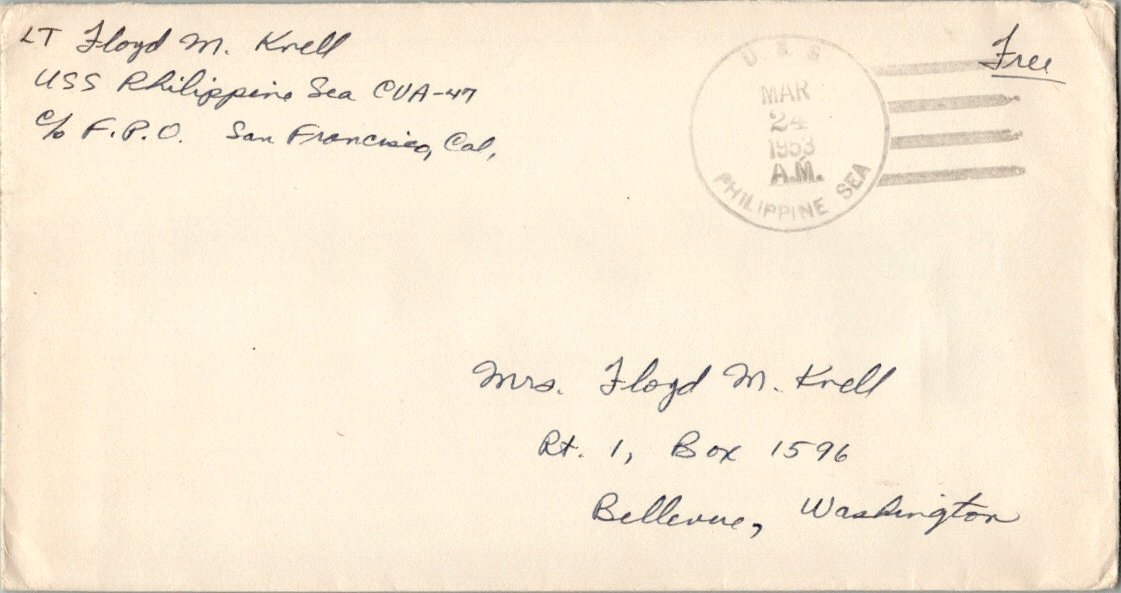 LT Floyd M. Krell
USS Philippine Sea CVA-47
c/o F.P.O. San Francisco, Cal,
U.S.S.
MAR
24
1953
A.M.
PHILIPPINE SEA
Free
Mrs. Floyd M. Krell
Rt. 1, Box 1596
Bellevue, Washington